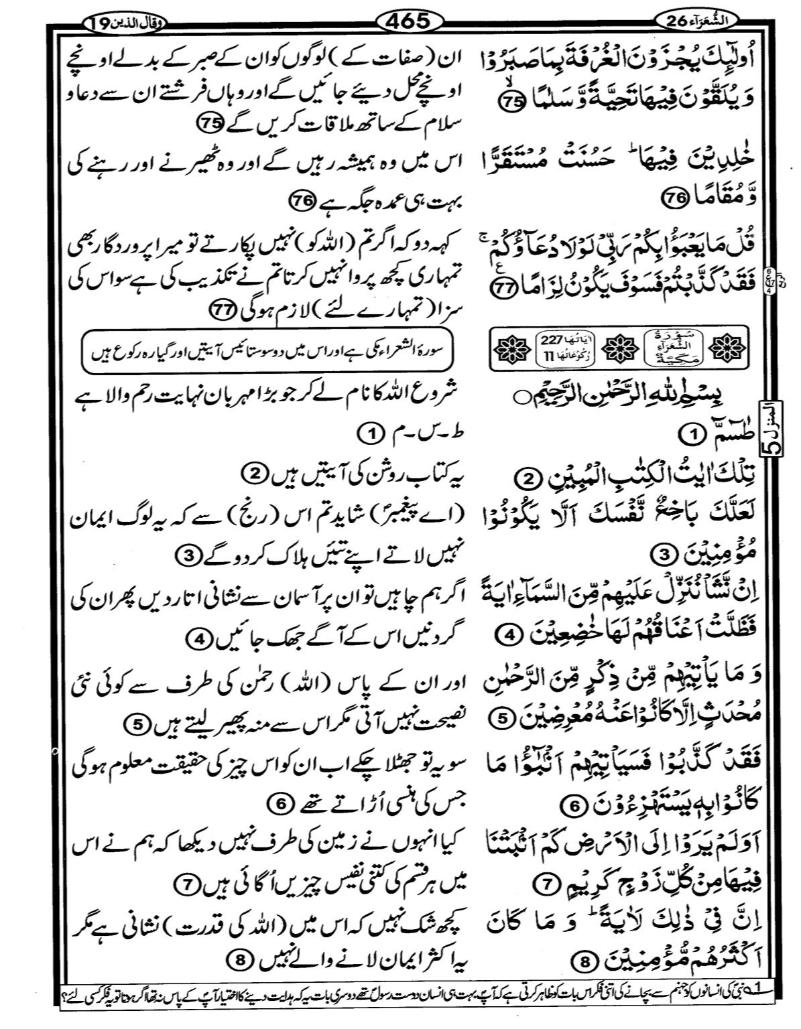 الشُّعَرَآء 26
465
وَقَالَ الَّذِينَ 19
اُولٰٓئِكَ يُجْزَوْنَ الْغُرْفَةَ بِمَا صَبَرُوْا
وَيُلَقَّوْنَ فِيْهَا تَحِيَّةً وَّسَلٰمًا ۙ 75
ان (صفات کے) لوگوں کو ان کے صبر کے بدلے اونچے
اونچے محل دیئے جائیں گے اور وہاں فرشتے ان سے دعا و
سلام کے ساتھ ملاقات کریں گے 75
خٰلِدِيْنَ فِيْهَا ؕ حَسُنَتْ مُسْتَقَرًّا
وَّمُقَامًا 76
اس میں وہ ہمیشہ رہیں گے اور وہ ٹھیرنے اور رہنے کی
بہت ہی عمدہ جگہ ہے 76
قُلْ مَا يَعْبَؤُا بِكُمْ رَبِّيْ لَوْلَا دُعَآؤُكُمْ ۚ
فَقَدْ كَذَّبْتُمْ فَسَوْفَ يَكُوْنُ لِزَامًا ع 77
کہہ دو کہ اگر تم (اللہ کو) نہیں پکارتے تو میرا پروردگار بھی
تمہاری کچھ پروا نہیں کرتا تم نے تکذیب کی ہے سو اس کی
سزا (تمہارے لئے) لازم ہوگی 77
سُوْرَةُ الشُّعَرَآءِ مَكِّيَّةٌ
اٰيَاتُهَا 227
رُكُوْعَاتُهَا 11
سورۃ الشعراء مکی ہے اور اس میں دو سو ستائیس آیتیں اور گیارہ رکوع ہیں
بِسْمِ اللّٰهِ الرَّحْمٰنِ الرَّحِيْمِ ○
شروع اللہ کا نام لے کر جو بڑا مہربان نہایت رحم والا ہے
طٰسٓمّٓ 1
ط-س-م 1
المنزل 5
تِلْكَ اٰيٰتُ الْكِتٰبِ الْمُبِيْنِ 2
یہ کتاب روشن کی آیتیں ہیں 2
لَعَلَّكَ بَاخِعٌ نَّفْسَكَ اَلَّا يَكُوْنُوْا
مُؤْمِنِيْنَ 3
(اے پیغمبرؐ) شاید تم اس (رنج) سے کہ یہ لوگ ایمان
نہیں لاتے اپنے تئیں ہلاک کر دو گے 3
اِنْ نَّشَاْ نُنَزِّلْ عَلَيْهِمْ مِّنَ السَّمَآءِ اٰيَةً
فَظَلَّتْ اَعْنَاقُهُمْ لَهَا خٰضِعِيْنَ 4
اگر ہم چاہیں تو ان پر آسمان سے نشانی اتار دیں پھر ان کی
گردنیں اس کے آگے جھک جائیں 4
وَمَا يَاْتِيْهِمْ مِّنْ ذِكْرٍ مِّنَ الرَّحْمٰنِ
مُحْدَثٍ اِلَّا كَانُوْا عَنْهُ مُعْرِضِيْنَ 5
اور ان کے پاس (اللہ) رحمٰن کی طرف سے کوئی نئی
نصیحت نہیں آتی مگر اس سے منہ پھیر لیتے ہیں 5
فَقَدْ كَذَّبُوْا فَسَيَاْتِيْهِمْ اَنْۢبٰٓؤُا مَا
كَانُوْا بِهٖ يَسْتَهْزِءُوْنَ 6
سو یہ تو جھٹلا چکے اب ان کو اس چیز کی حقیقت معلوم ہوگی
جس کی ہنسی اُڑاتے تھے 6
اَوَلَمْ يَرَوْا اِلَى الْاَرْضِ كَمْ اَنْۢبَتْنَا
فِيْهَا مِنْ كُلِّ زَوْجٍ كَرِيْمٍ 7
کیا انہوں نے زمین کی طرف نہیں دیکھا کہ ہم نے اس
میں ہر قسم کی کتنی نفیس چیزیں اُگائی ہیں 7
اِنَّ فِيْ ذٰلِكَ لَاٰيَةً ؕ وَمَا كَانَ
اَكْثَرُهُمْ مُّؤْمِنِيْنَ 8
کچھ شک نہیں کہ اس میں (اللہ کی قدرت) نشانی ہے مگر
یہ اکثر ایمان لانے والے نہیں 8
1۔ نبیؐ کی انسانوں کو جہنم سے بچانے کی اتنی فکر اس بات کو ظاہر کرتی ہے کہ آپؐ بہت ہی انسان دوست رسول تھے دوسری بات یہ کہ ہدایت دینے کا اختیار آپؐ کے پاس نہ تھا اگر ہوتا تو یہ فکر کس لئے؟